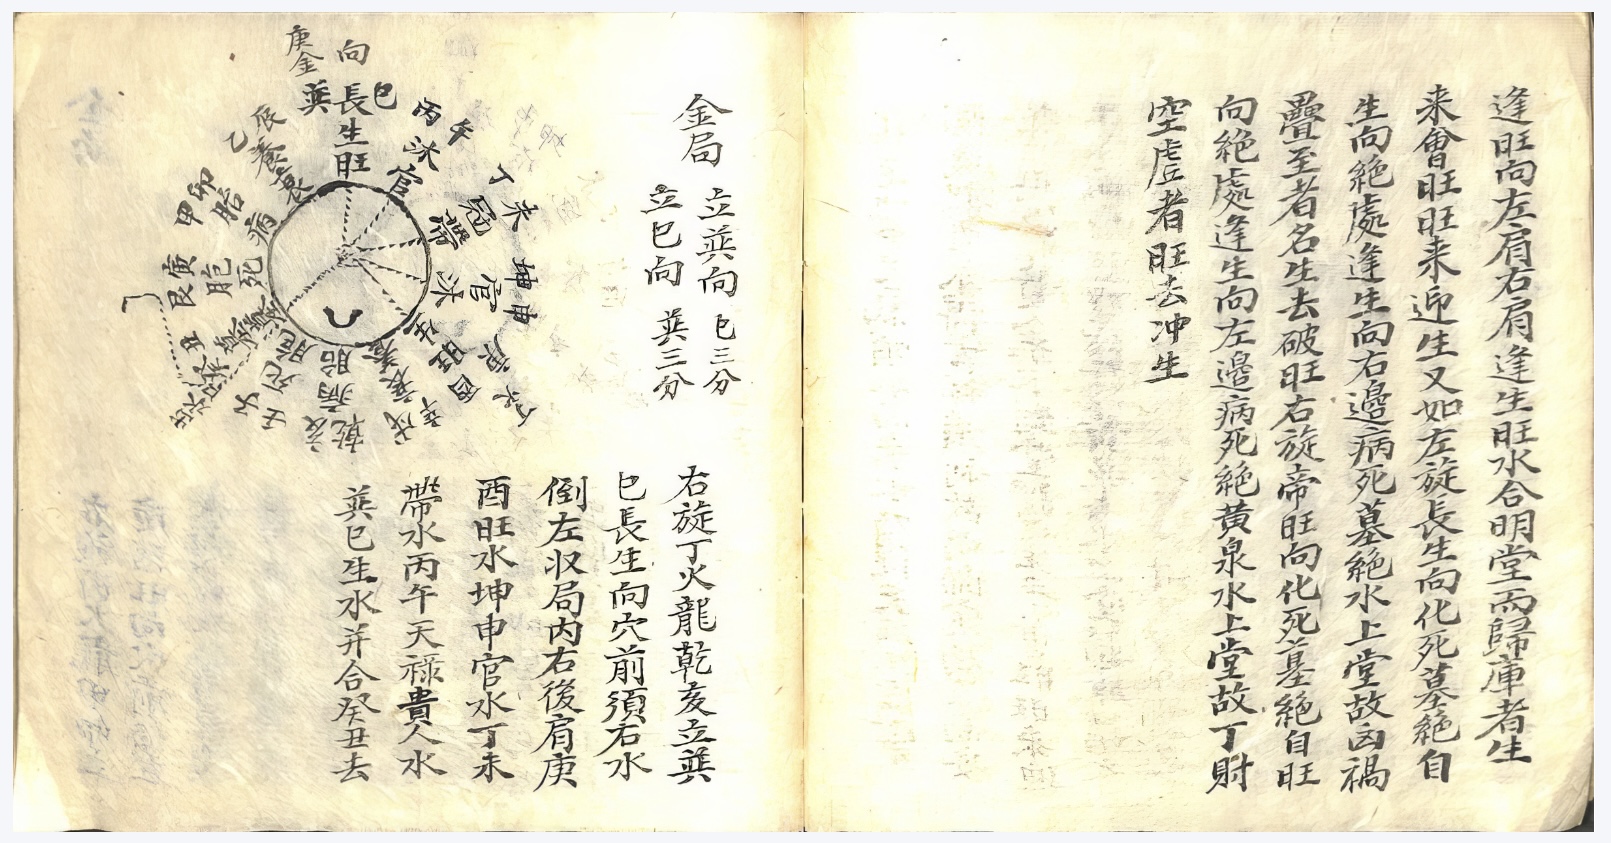 逢旺向左肩右肩逢生旺水合明堂而歸庫者生
来會旺旺来迎生又如左旋長生向化死墓絕自
生向絕處逢生向右邊病死墓絕水上堂故凶禍
疊至者名生去破旺右旋帝旺向化死墓絕自旺
向絕處逢生向左邊病死絕黃泉水上堂故丁財
空虛者旺去冲生
金局
立巽向 巳三分
立巳向 巽三分
右旋丁火龍乾亥立巽
巳長生向穴前須右水
倒左収局内右後肩庚
酉旺水坤申官水丁未
帶水丙午天祿貴人水
巽巳生水并合癸丑去
向
庚金
巽長巳
生
旺
丙午
沐
官
丁未
冠
帶
坤申
官
沐
庚
酉
旺
生
辛戌
衰
養
乾亥
病
胎
壬
死
胞
艮寅
胞
死
甲卯
胎
病
乙辰
養
衰